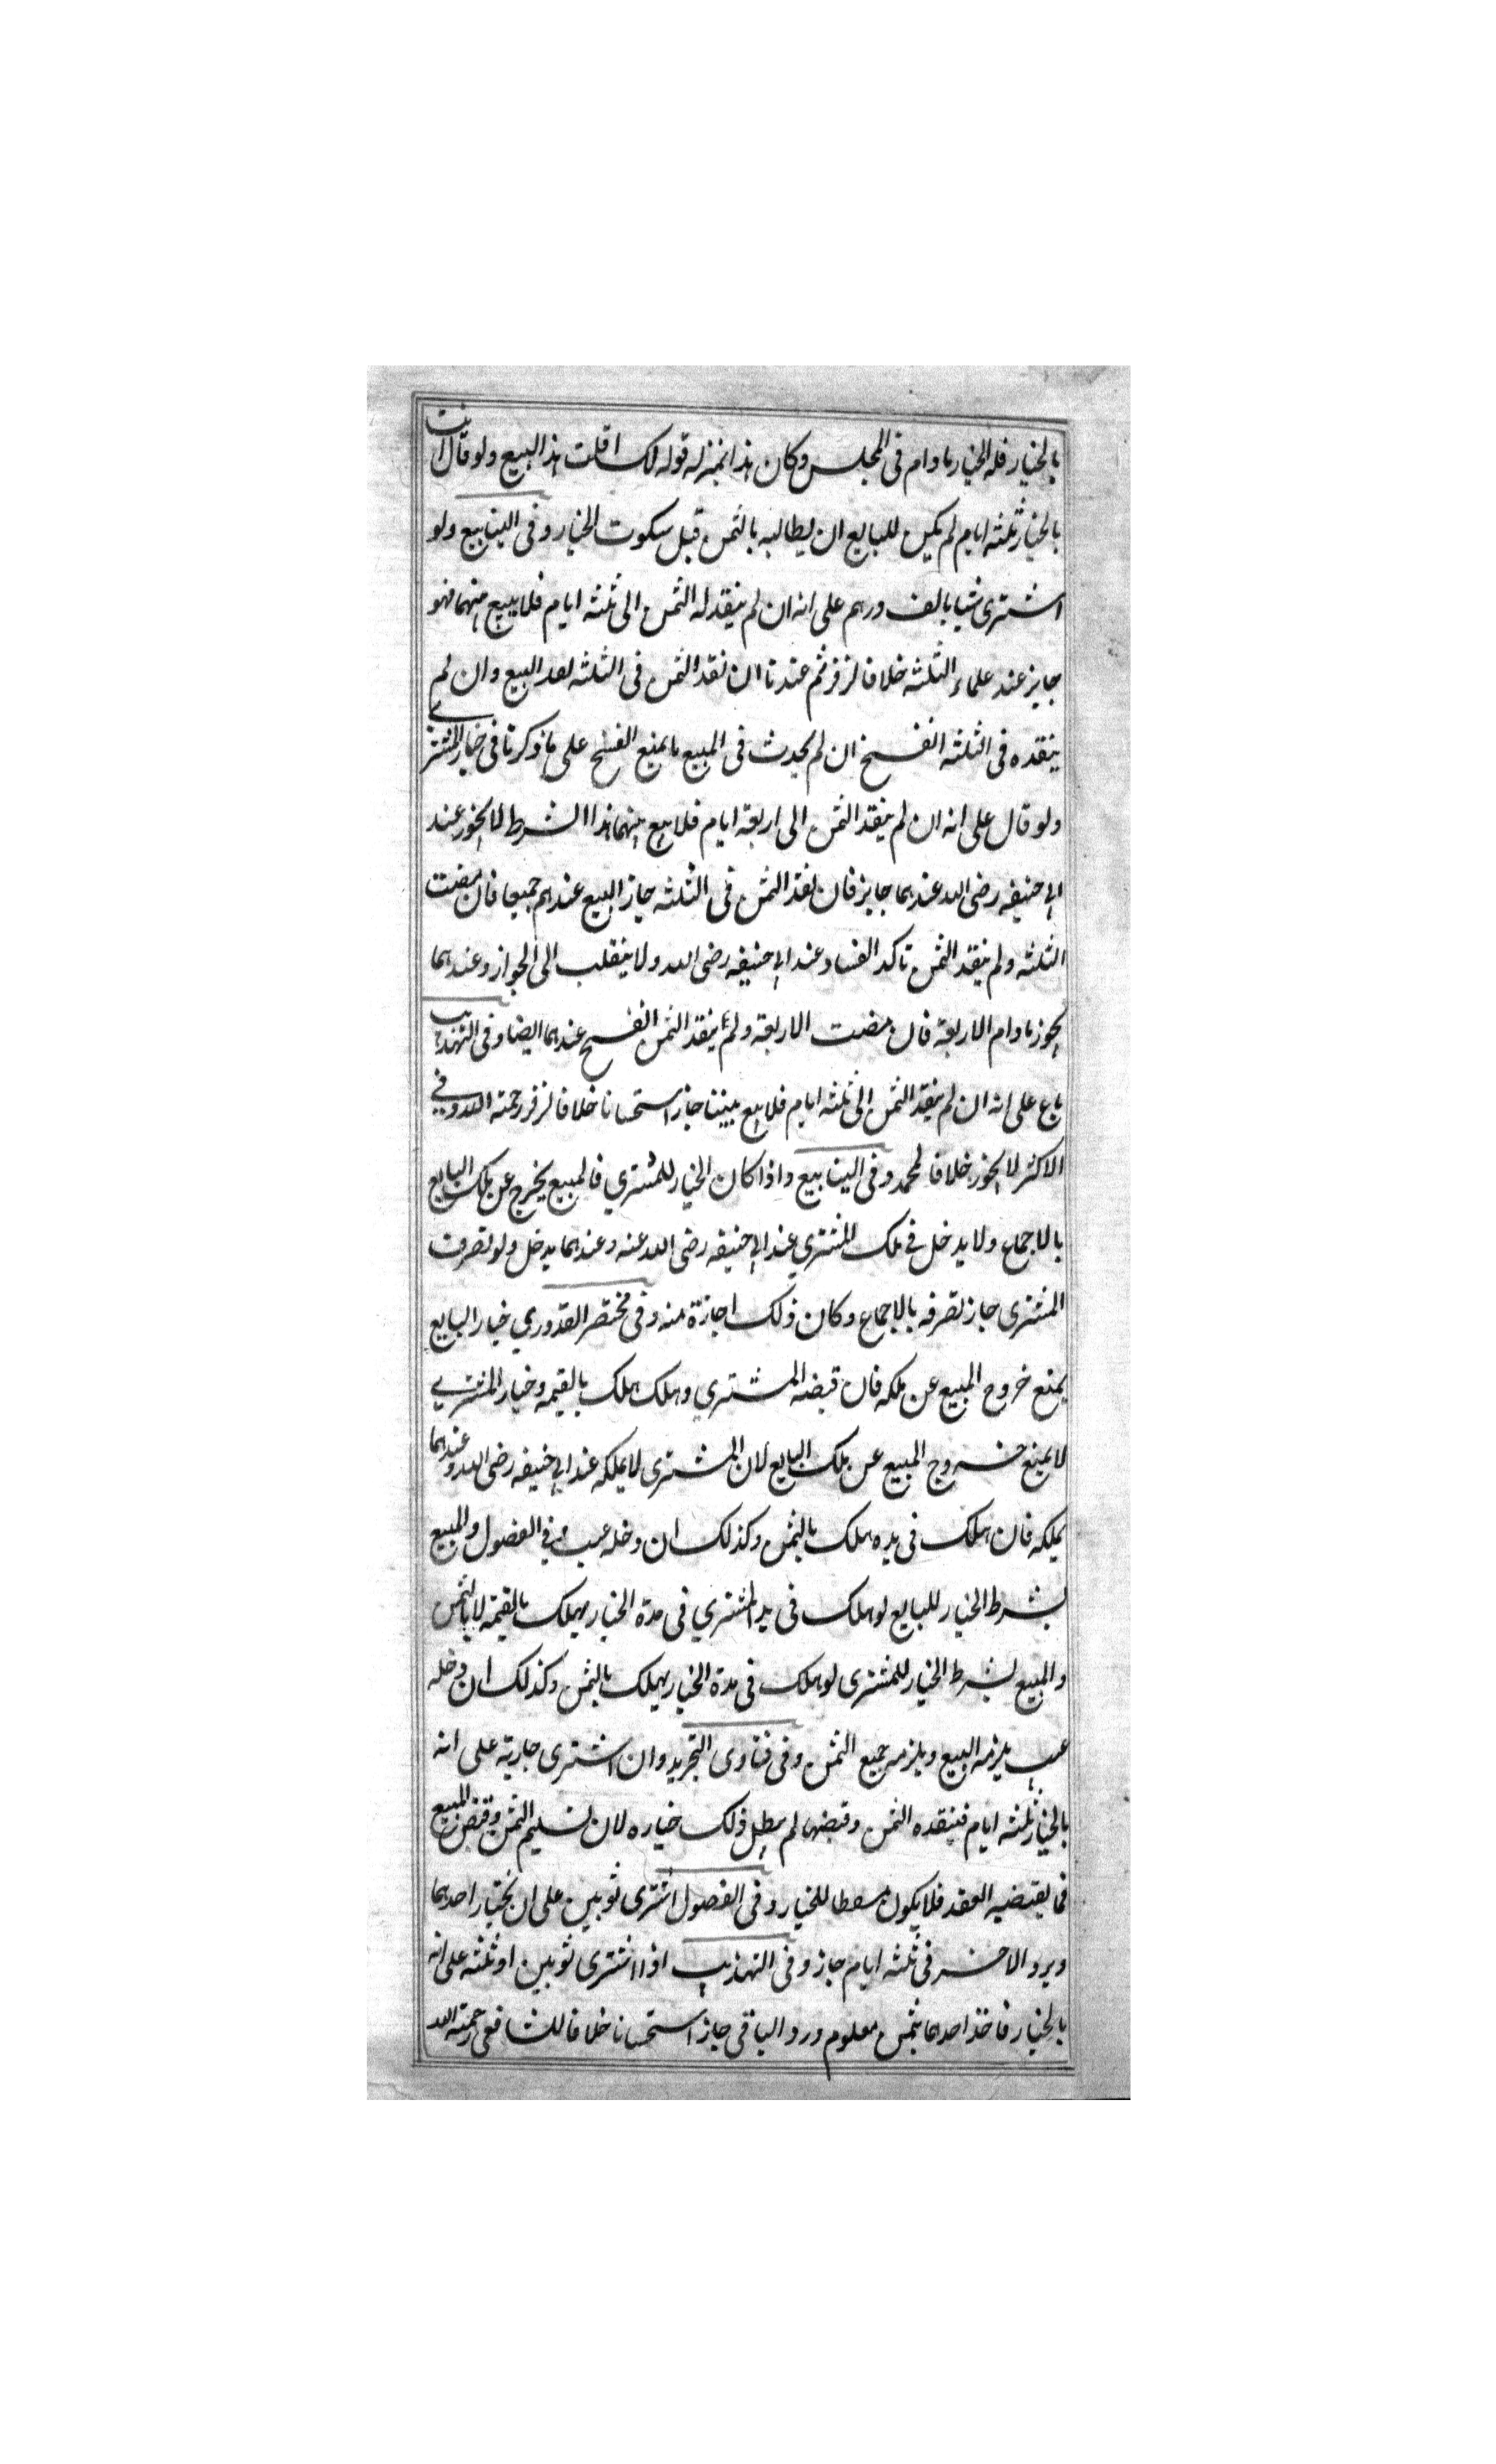 بالخيار فله الخيار مادام فى المجلس وكان هذا بمنزله قوله لك اقلت هذا البيع ولو قال انت
بالخيار ثلثه ايام لم يكن للبايع ان يطالبه بالثمن قبل سكوت الخيار وفى الينابيع ولو
اشترى شيا بالف درهم على انه ان لم ينقد له الثمن الى ثلثه ايام فلا بيع بينهما فهو
جايز عند علماء الثلثه خلافا لزفر ثم عندنا ان نقد الثمن فى الثلثه نعد البيع وان لم
ينقده فى الثلثه انفسخ ان لم يحدث فى المبيع ما يمنع الفسخ على ما ذكرنا فى خيار المشترے
ولو قال على انه ان لم ينقد الثمن الى اربعة ايام فلا بيع بينهما هذا الشرط لا يجوز عند
ابى حنيفه رضى الله عندهما جايز فان نقد الثمن فى الثلثه جاز البيع عندهم جميعا فان مضت
الثلثه ولم ينقد الثمن تاكد الفساد عند ابى حنيفه رضى الله ولا ينقلب الى الجواز وعندهما
يجوز مادام الاربعة فان مضت الاربعة ولم ينقد الثمن انفسخ عندهما ايضا وفى التهذيب
باع على انه ان لم ينقد الثمن الى ثلثه ايام فلا بيع بيننا جاز استحسانا خلافا لزفر رحمته الله وفي
الاكثر لا يجوز خلافا لمحمد وفى الينابيع واذا كان الخيار للمشتري فالمبيع يخرج عن ملك البايع
بالاجماع ولا يدخل فى ملك المشتري عند ابى حنيفه رضى الله عنه وعندهما يدخل ولو تصرف
المشترى جاز تصرفه بالاجماع وكان ذلك اجازة منه وفى مختصر القدوري خيار البايع
يمنع خروج المبيع عن ملكه فان قبضه المشتري وهلك هلك بالقيمه وخيار المشترے
لا يمنع خروج المبيع عن ملك البايع لان المشترى لا يملكه عند ابى حنيفه رضى الله وعندهما
يملكه فان هلك فى يده هلك بالثمن وكذلك ان دخله عيب وفي الفصول والمبيع
بشرط الخيار للبايع لو هلك فى يد المشتري فى مدة الخيار يهلك بالقيمة لا بالثمن
والمبيع بشرط الخيار للمشترى لو هلك فى مدة الخيار يهلك بالثمن وكذلك ان دخله
عيب يلزمه البيع ويلزمه جميع الثمن وفى فتاوى التجريد وان اشترى جارية على انه
بالخيار ثلثه ايام فينقده الثمن وقبضها لم يبطل ذلك خياره لان تسليم الثمن وقبض المبيع
مما يقتضيه العقد فلا يكون مسقطا للخيار وفى الفصول اشترى ثوبين على ان يختار احدهما
ويرد الاخر فى ثلثه ايام جاز وفى التهذيب اذا اشترى ثوبين او ثلثه على انه
بالخيار فاخذ احدهما بثمن معلوم ورد الباقى جاز استحسانا خلافا للشافعى رحمته الله